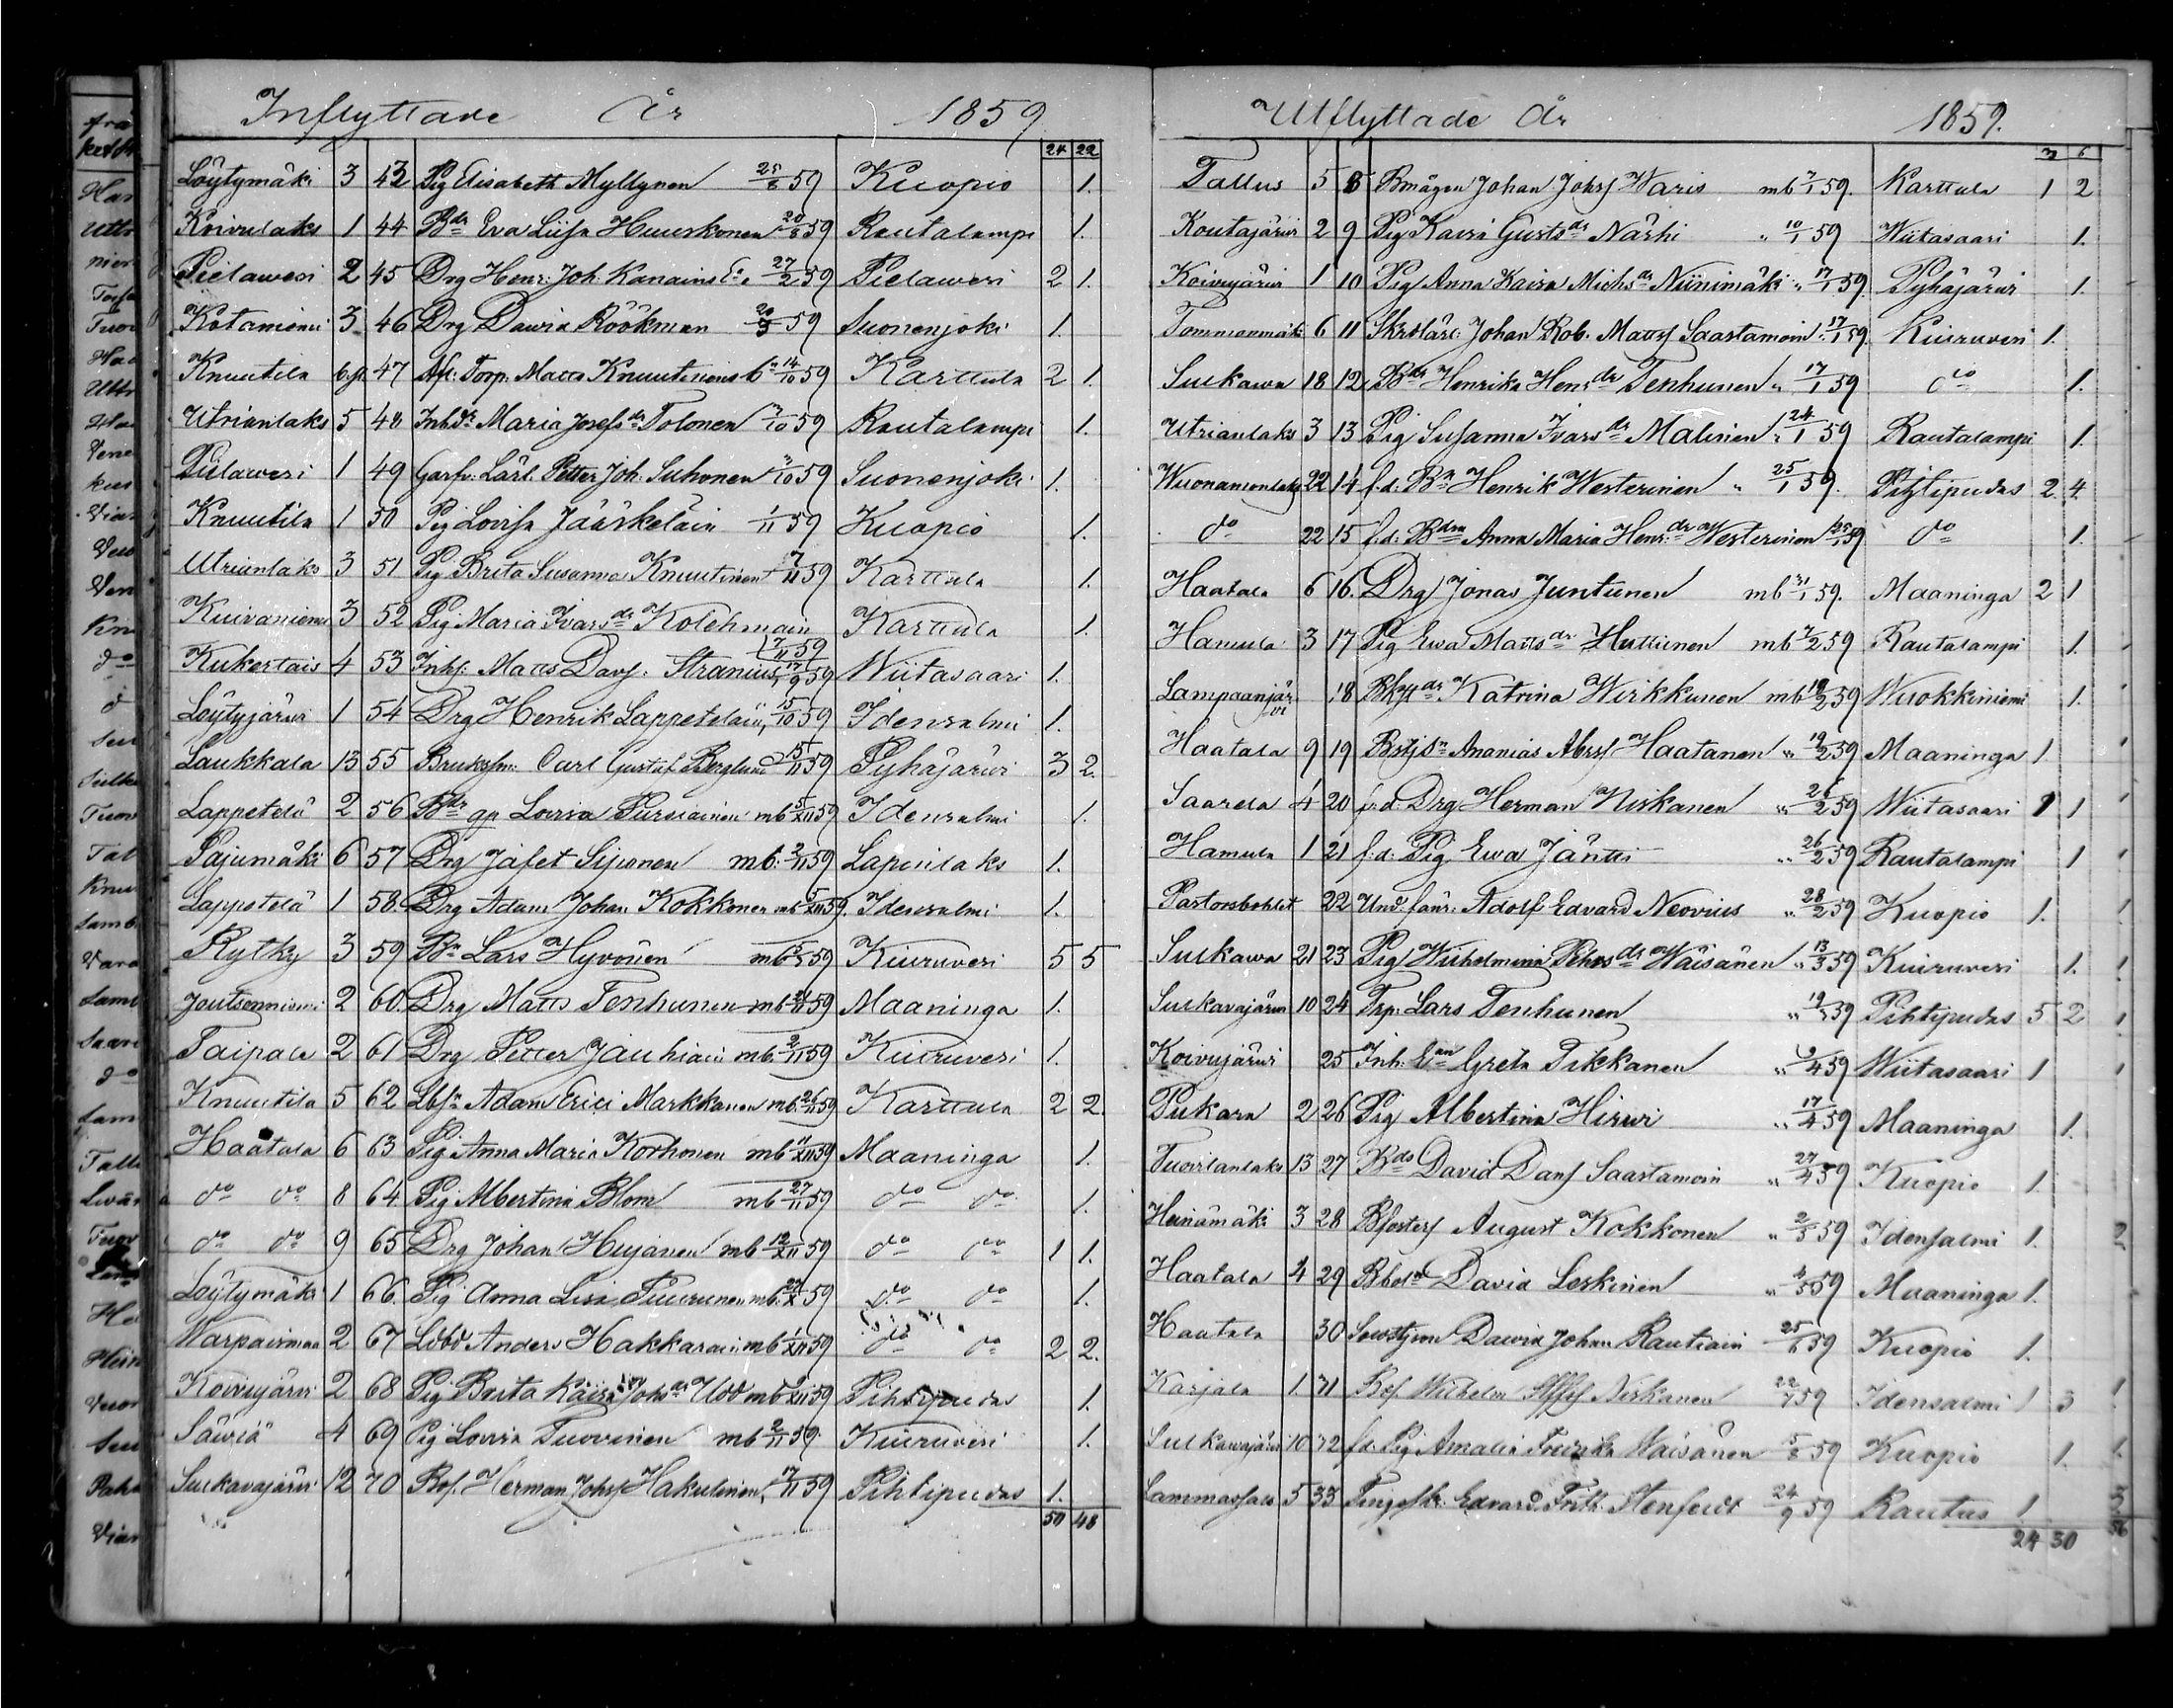 Inflyttade År 1859
24 22
Löytymäki 3 43 Pig Elisabeth Myllynen 25/8 59 Kuopio 1.
Koivulaks 1 44 Bdr Eva Liisa Huuskonen 20/8 59 Rautalampi 1.
Pielavesi 2 45 Drg Henr: Joh. Kanainen 27/2 59 Pielavesi 2 1.
Kotaniemi 3 46 Drg David Röökman 59 Suonenjoki 1.
Knuutila 47 Afl: Torp. Matts Knuutinens 14/10 59 Karttula 2 1.
Utrianlaks 5 48 Inhdr Maria Josefsdr Tolonen 3/10 59 Rautalampi 1.
Pielavesi 1 49 Garfv: Lärl: Petter Joh. Suhonen 3/10 59 Suonenjoki 1.
Knuutila 1 50 Pig Lovisa Jääskeläin 1/11 59 Kuopio 1.
Utrianlaks 3 51 Pig Brita Susanna Knuutinen 7/11 59 Karttula 1.
Kuivaniemi 3 52 Pig Maria Ivarsdr Kolehmain 7/11 59 Karttula 1.
Kukertais 4 53 Inhs: Matts Davs: Stranius 17/9 59 Wiitasaari 1.
Löytyjärvi 1 54 Drg Henrik Lappeteläin, 15/10 59 Idensalmi 1.
Laukkala 13 55 Bruksfm: Carl Gustaf Berglund 15/11 59 Pyhäjärvi 3 2.
Lappetelä 2 56 Bdr Lovisa Pursiainen mb 5/XII 59 Idensalmi 1.
Pajumäki 6 57 Drg Jafet Sijvonen mb. 2/11 59 Lapinlaks 1.
Lappetelä 1 58. Drg Adam Johan Kokkonen mb 5/XII 59. Idensalmi 1.
Rytky 3 59 Bn Lars Hyvönen mb 59 Kiuruvesi 5 5
Joutsenniemi 2 60. Drg Matts Tenhunen mb 59 Maaninga 1.
Taipale 2 61 Drg Petter Jauhiain mb. 2/11 59 Kiuruvesi 1.
Knuutila 5 62 Lbfn Adam Erici Markkanen mb. 26/11 59 Karttula 2 2.
Haatala 6 63 Pig Anna Maria Korhonen mb 11/XII 59 Maaninga 1.
do do 8 64 Pig Albertina Blom mb 27/11 59 do do 1.
do do 9 65 Drg Johan Hujanen mb 12/XII 59 do do 1 1.
Löytymäki 1 66. Pig Anna Lisa Puurunen mb. 59 do do 1.
Warpaismaa 2 67 Ldbd Anders Hakkarain mb 1/XII 59 do do 2 2.
Koivujärvi 2 68 Pig Brita Kaisa Johsdr Udd mb 59 Pihtipudas 1.
Säviä 4 69 Pig Lovisa Tuovinen mb 2/11 59 Kiuruvesi 1.
Sulkavajärvi 12 70 Bof. Herman Johsf Hakulinen, 17/11 59 Pihtipudas 1.
50 48
Utflyttade År 1859.
3 6
Tallus 5 8 Bmågen Johan Johsf Waris mb 7/1 59. Karttula 1 2
Koutajärvi 2 9 Pig Kaisa Gustsdr Närhi " 10/1 59 Wiitasaari 1.
Koivujärvi 1 10 Pig Anna Kaisa Michsdr Niinimäki " 17/1 59. Pyhäjärvi 1.
Tommonmäki 6 11 Skrslärl: Johan Rob. Mattsf Saastamoin " 17/1 59. Kiuruvesi 1.
Sulkava 18 12 Bdr Henrika Hensdr Tenhunen " 17/1 59 do 1.
Utrianlaks 3 13 Pig Susanna Ivarsdr Malinen " 24/1 59 Rautalampi 1.
Wuonamonlaks 22 14 f.d. Bn Henrik Westerinen " 25/1 59. Pihtipudas 2. 4.
do 22 15 f.d. Bdra Anna Maria Hens:dr Westerinen 25/1 59 do 1.
Haatala 6 16. Drg Jonas Juntunen mb 31/1 59. Maaninga 2 1
Hamula 3 17 Pig Ewa Mattsdr Huttunen mb 7/2 59 Rautalampi 1.
Lampaanjärvi 18 Katrina Wirkkunen mb 19/2 59 Wuokkiniemi 1.
Haatala 9 19 Ananias Abrsf Haatanen " 19/2 59 Maaninga 1.
Saarela 4 20 f.d. Drg Herman Niskanen " 26/2 59 Wiitasaari 1 1
Hamula 1 21 f.d. Pig Ewa Jäntti " 26/2 59 Rautalampi 1
Pastorsbohlet 22 Und: fänr: Adolf Edvard Neovius " 28/2 59 Kuopio 1.
Sulkawa 21 23 Pig Wilhelmina Pehrsdr Wäisänen " 13/3 59 Kiuruvesi 1.
Sulkavajärvi 10 24 Trp: Lars Tenhunen " 59 Pihtipudas 5 2
Koivujärvi 25 Inh: Ean Greta Tikkanen " 59 Wiitasaari 1
Pukara 2 26 Pig Albertina Hirvi " 17/4 59 Maaninga 1.
Tuovilanlaks 13 27 David Davsf Saastamoin " 27/4 59 Kuopio 1.
Heinämäki 3 28 Bfostersf August Kokkonen " 2/5 59 Idensalmi 1. 2.
Haatala 4 29 David Leskinen " 59 Maaninga 1.
Haatala 30 David Johan Rautiain 25/6 59 Kuopio 1.
Karjala 1. 31 Bof Wilhelm Niskanen 22/7 59 Idensalmi 1 3
Sulkavajärvi 10 32 f.d. Pig Amalia Fredrika Waisänen 5/8 59 Kuopio 1.
Lammassalo 5 33 Edvard Frith. Stenfeldt 24/9 59 Rautus 1
24 30 56